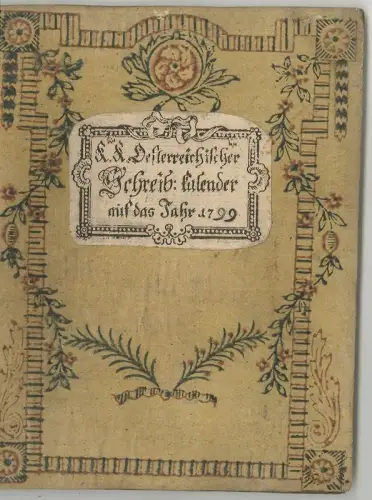 K. K. Oesterreichischer
Schreib: Calender
auf das Jahr 1799